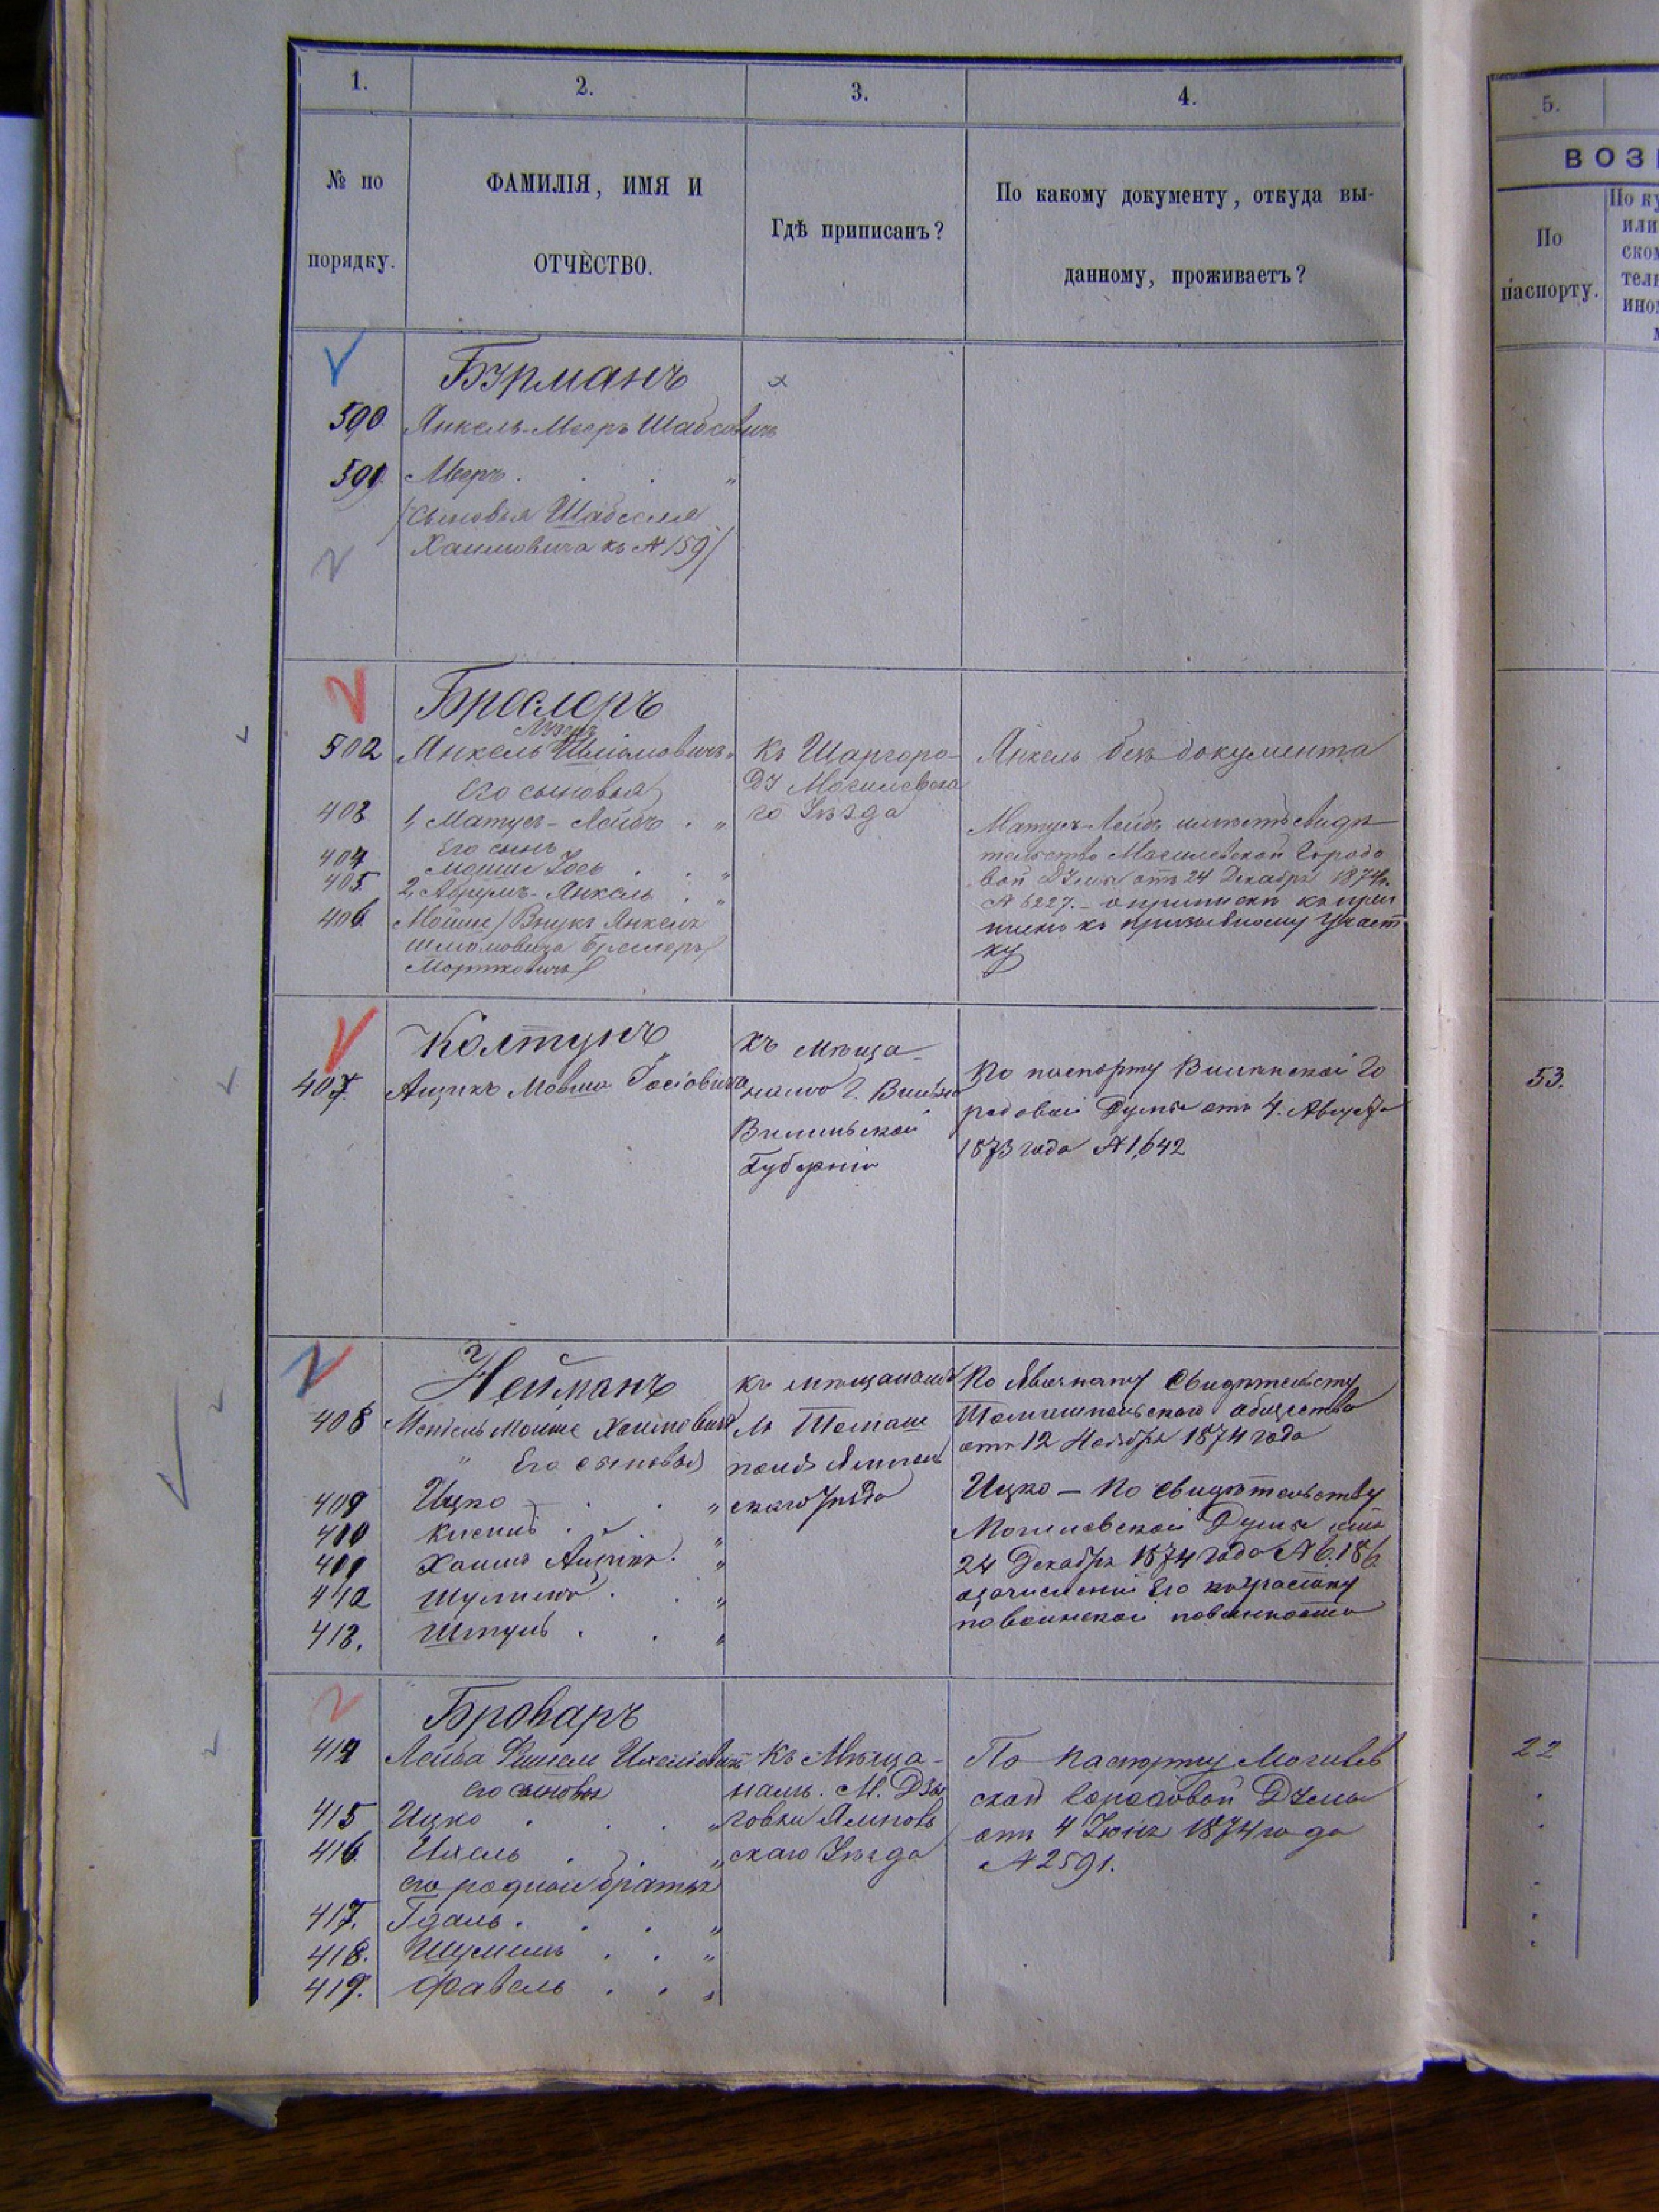 1.
2.
3.
4.
5.
№ по
порядку.
ФАМИЛІЯ, ИМЯ И
ОТЧЕСТВО.
Гдѣ приписанъ?
По какому документу, откуда вы-
данному, проживаетъ?
ВОЗ
По
паспорту.
По ку
или
ском
тел
ино
Бурманъ
590 Янкель-Мееръ Шабсовичъ
591 Мееръ . . . "
/сыновья Шабселя
Хаимовича къ № 159/
Бреслеръ
502 Янкель Шліомовичъ
Его сыновья
403 1, Матусъ-Лейбъ . "
его сынъ
404 Мошие Іось . . "
405 2, Абрумъ-Янкель . "
406 Мойше / Внукъ Янкеля
Шліомовича Бреслеръ
Мортковичъ /
Къ Шаргоро-
ду Могилевска
го Уѣзда
Янкель безъ документа
Матусъ-Лейбъ имѣетъ свидѣ
тельство Могилевской Городо
вой Думы отъ 24 Декабря 1874 г.
№ 6227. – о приписки
къ призывному участ
ку
Колтунъ
407 Ицикъ Мовша Іосіовичъ
Къ мѣща-
намъ г. Вильно
Виленьской
Губерніи
По паспорту Виленской Го
родовой Думы отъ 4. Августа
1873 года № 1,642
53.
Нейманъ
408 Мендель Мойше Хаимовичъ
" Его сыновья
409 Ицко . . "
410 Кисель . . "
411 Хаимъ Ицикъ . "
412 Шулимъ . . "
413. Шмуль . . "
къ мѣщанамъ
М. Томаш
поль Ямполь
скаго Уѣзда
По Явочному Свидѣтельству
Томашпольскаго общества
отъ 12 Ноября 1874 года
Ицко – По свидѣтельству
Могилевской Думы отъ
24 Декабря 1874 года № 6.186
о зачислении его къ участку
по воинской повинности
Броваръ
414 Лейба Фишель Ихелiовичъ
его сыновья
415 Ицко . . . "
416 Ихель . . "
его родныи братья
417. Гдаль . . . "
418. Шулимъ . . "
419. Файвель . . "
Къ Мѣща-
намъ. М. Дзы
говки Ямполь
скаго Уѣзда
По паспорту Могилев
ской Городовой Думы
отъ 4 Іюня 1874 года
№ 2591.
22